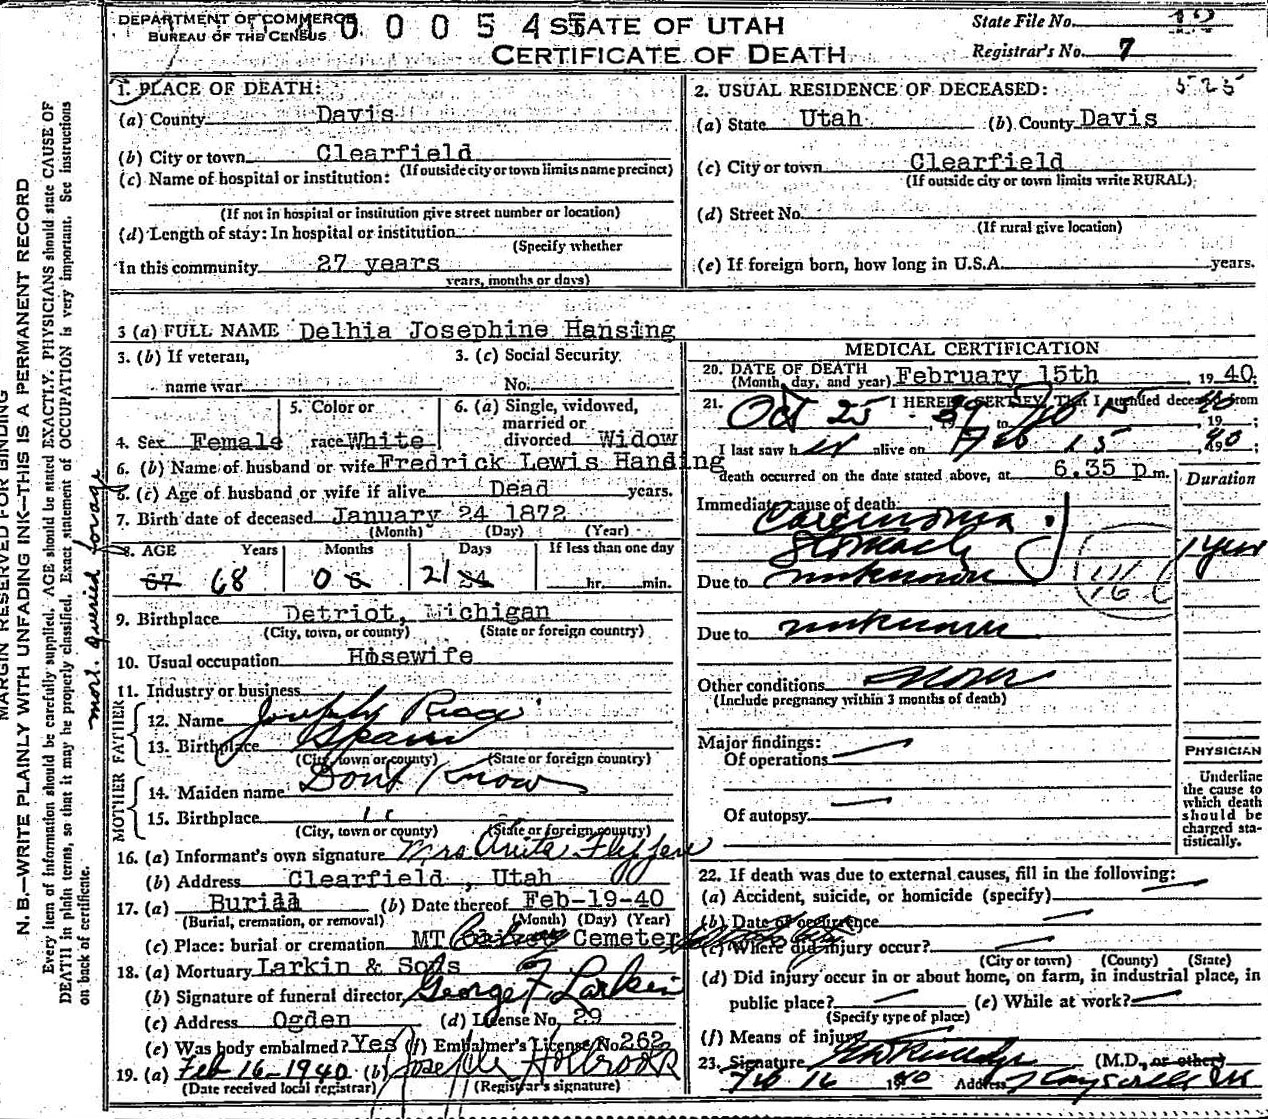 DEPARTMENT OF COMMERCE
BUREAU OF THE CENSUS
0 0 0 5 4 5
STATE OF UTAH
CERTIFICATE OF DEATH
State File No.
Registrar's No. 7
525
1. PLACE OF DEATH:
(a) County Davis
(b) City or town Clearfield
(If outside city or town limits name precinct)
(c) Name of hospital or institution:
(If not in hospital or institution give street number or location)
(d) Length of stay: In hospital or institution
(Specify whether
In this community 27 years
years, months or days)
2. USUAL RESIDENCE OF DECEASED:
(a) State Utah (b) County Davis
(c) City or town Clearfield
(If outside city or town limits write RURAL)
(d) Street No.
(If rural give location)
(e) If foreign born, how long in U.S.A. years.
3 (a) FULL NAME Delhia Josephine Hansing
3. (b) If veteran,
name war
3. (c) Social Security
No.
4. Sex Female
5. Color or
race White
6. (a) Single, widowed,
married or
divorced Widow
6. (b) Name of husband or wife Fredrick Lewis Handing
6. (c) Age of husband or wife if alive Dead years.
7. Birth date of deceased January 24 1872
(Month) (Day) (Year)
8. AGE Years Months Days If less than one day
67 68 0 21 hr. min.
9. Birthplace Detriot, Michigan
(City, town, or county) (State or foreign country)
10. Usual occupation Hosewife
11. Industry or business
FATHER
12. Name Joseph
13. Birthplace Spain
(City, town or county) (State or foreign country)
MOTHER
14. Maiden name Dont Know
15. Birthplace "
(City, town or county) (State or foreign country)
16. (a) Informant's own signature Mrs Anita
(b) Address Clearfield, Utah
17. (a) Burial (b) Date thereof Feb-19-40
(Burial, cremation, or removal) (Month) (Day) (Year)
(c) Place: burial or cremation MT Cemetery
18. (a) Mortuary Larkin & Sons
(b) Signature of funeral director George F Larkin
(c) Address Ogden (d) License No. 29
(e) Was body embalmed? Yes (f) Embalmer's License No. 262
19. (a) Feb 16-1940 (b) Joseph Holbrook
(Date received local registrar) (Registrar's signature)
MEDICAL CERTIFICATION
20. DATE OF DEATH
(Month, day, and year) February 15th, 1940;
21. I HEREBY CERTIFY, That I attended deceased from
Oct 25 39 to Feb 15, 1940
I last saw h er alive on Feb 15, 1940;
death occurred on the date stated above, at 6.35 p m.
Duration
Immediate cause of death
Carcinoma of
Stomach 1 year
Due to unknown
Due to unknown
Other conditions none
(Include pregnancy within 3 months of death)
Major findings:
Of operations
Of autopsy
PHYSICIAN
Underline
the cause to
which death
should be
charged sta-
tistically.
22. If death was due to external causes, fill in the following:
(a) Accident, suicide, or homicide (specify)
(b) Date of occurrence
(c) Where did injury occur?
(City or town) (County) (State)
(d) Did injury occur in or about home, on farm, in industrial place, in
public place? (e) While at work?
(Specify type of place)
(f) Means of injury
23. Signature (M.D., or other)
Feb 16 1940 Address Kaysville Ut
MARGIN RESERVED FOR BINDING
N. B.—WRITE PLAINLY WITH UNFADING INK—THIS IS A PERMANENT RECORD
Every item of information should be carefully supplied. AGE should be stated EXACTLY. PHYSICIANS should state CAUSE OF
DEATH in plain terms, so that it may be properly classified. Exact statement of OCCUPATION is very important. See instructions
on back of certificate.
mort. queried for age